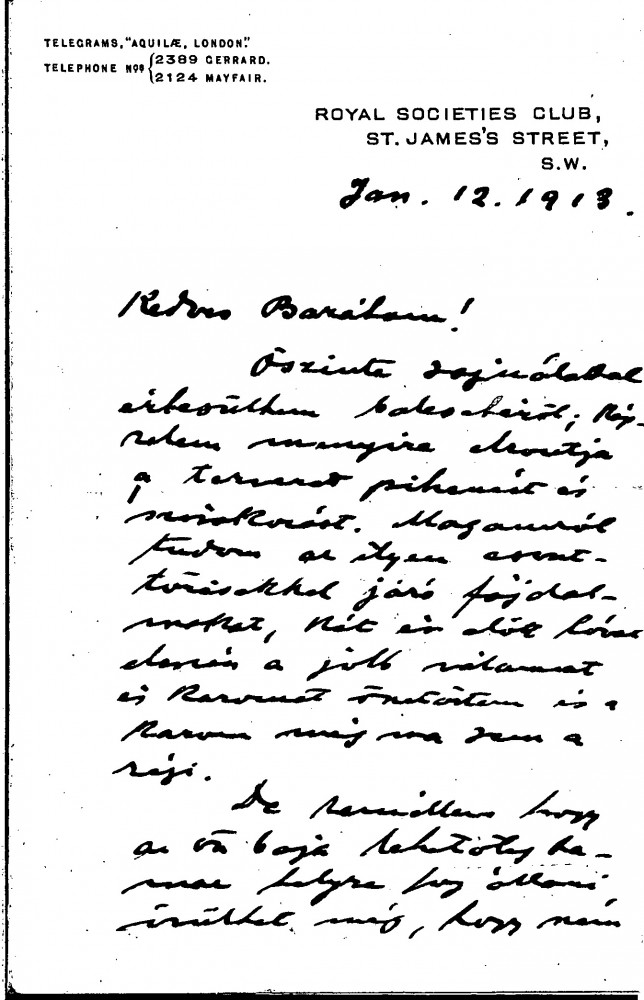 TELEGRAMS, "AQUILÆ, LONDON."
TELEPHONE Nos {2389 GERRARD.
{2124 MAYFAIR.
ROYAL SOCIETIES CLUB,
ST. JAMES'S STREET,
S.W.
Jan. 12. 1913.
Kedves Barátom!
Őszinte sajnálattal
értesültem balesetéről; Kép-
zelem mennyire elrontja
a tervezett pihenést és
szórakozást. Magamról
tudom az ilyen csont-
törésekkel járó fájdal-
makat, Két év előtt lóval
elesvén a jobb vállamat
és Karomat összetörtem és a
Karom még ma sem a
régi.
De remélem hogy
az ön baja lehetőleg ha-
mar helyre fog állani
örülhet még, hogy nem